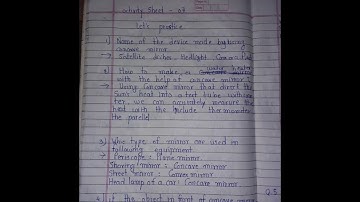 Activity Sheet - 08
Let's practice
1) Name of the device made by using
concave mirror.
→ Satellite dishes, Headlight, Concave
2) How to make a water heater
with the help of concave mirror?
→ Using Concave mirror that direct the
Sun's heat into a test tube with wa-
ter, we can accurately measure the
heat with the include thermometer
the parallel.
3) Which type of mirror are used in
following equipment.
→ Periscope: Plane mirror.
Shaving mirror: Concave mirror
Street mirror: Convex mirror.
Head lamp of a car: Concave mirror.
4) If the object in front of concave mirror